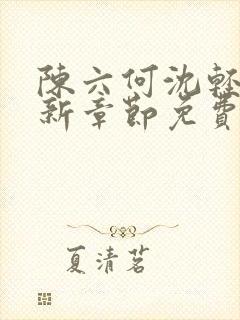 陳六何沈輕
新章節免費
夏清茗